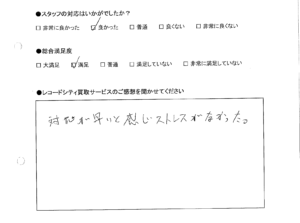 ●スタッフの対応はいかがでしたか?
□ 非常に良かった ☑ 良かった □ 普通 □ 良くない □ 非常に良くない
●総合満足度
□ 大満足 ☑ 満足 □ 普通 □ 満足していない □ 非常に満足していない
●レコードシティ買取サービスのご感想を聞かせてください
対応が早いと感じストレスがなかった。